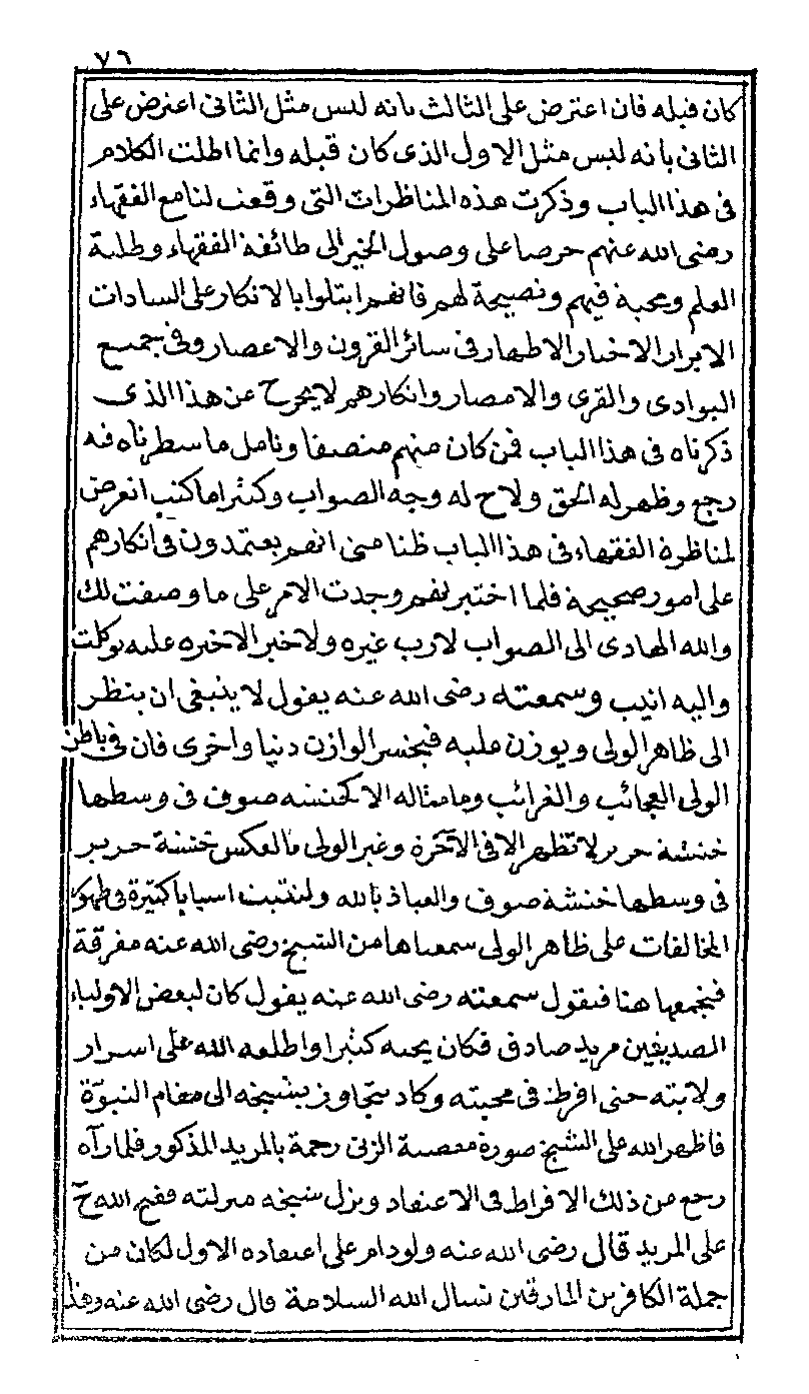 ٧٦
كان قبله فان اعترض على الثالث بانه ليس مثل الثانى اعترض على
الثانى بانه ليس مثل الاول الذى كان قبله وانما اطلت الكلام
فى هذا الباب وذكرت هذه المناظرات التى وقعت لنا مع الفقهاء
رضى الله عنهم حرصا على وصول الخير الى طائفة الفقهاء وطلبة
العلم ومحبة فيهم ونصيحة لهم فانهم ابتلوا بالانكار على السادات
الابرار الاخيار الاطهار فى سائر القرون والاعصار وفى جميع
البوادى والقرى والامصار وانكارهم لا يخرج عن هذا الذى
ذكرناه فى هذا الباب فمن كان منهم منصفا وتامل ما سطرناه فيه
رجع وظهر له الحق ولاح له وجه الصواب وكثيرا ما كنت اتعرض
لمناظرة الفقهاء فى هذا الباب ظنا منى انهم يعتمدون فى انكارهم
على امور صحيحة فلما اختبرتهم وجدت الامر على ما وصفت لك
والله الهادى الى الصواب لا رب غيره ولا خير الا خيره عليه توكلت
واليه انيب وسمعته رضى الله عنه يقول لا ينبغى ان ينظر
الى ظاهر الولى ويوزن عليه فيخسر الوازن دنيا واخرى فان فى باطن
الولى العجائب والغرائب وما مثاله الا كخنشه صوف فى وسطها
خنشة حرير لا تظهر الا فى الآخرة وغير الولى بالعكس خنشة حرير
فى وسطها خنشة صوف والعياذ بالله ولنثبت اسبابا كثيرة فى ظهور
المخالفات على ظاهر الولى سمعناها من الشيخ رضى الله عنه مفرقة
فنجمعها هنا فنقول سمعته رضى الله عنه يقول كان لبعض الاولياء
الصديقين مريد صادق فكان يحبه كثيرا واطلعه الله على اسرار
ولايته حتى افرط فى محبته وكاد يتجاوز بشيخه الى مقام النبوّة
فاظهر الله على الشيخ صورة معصية الزنى رحمة بالمريد المذكور فلما رآه
رجع من ذلك الافراط فى الاعتقاد ونزل شيخه منزلته ففتح الله ح
على المريد قال رضى الله عنه ولو دام على اعتقاده الاول لكان من
جملة الكافرين المارقين نسال الله السلامة قال رضى الله عنه وهذا